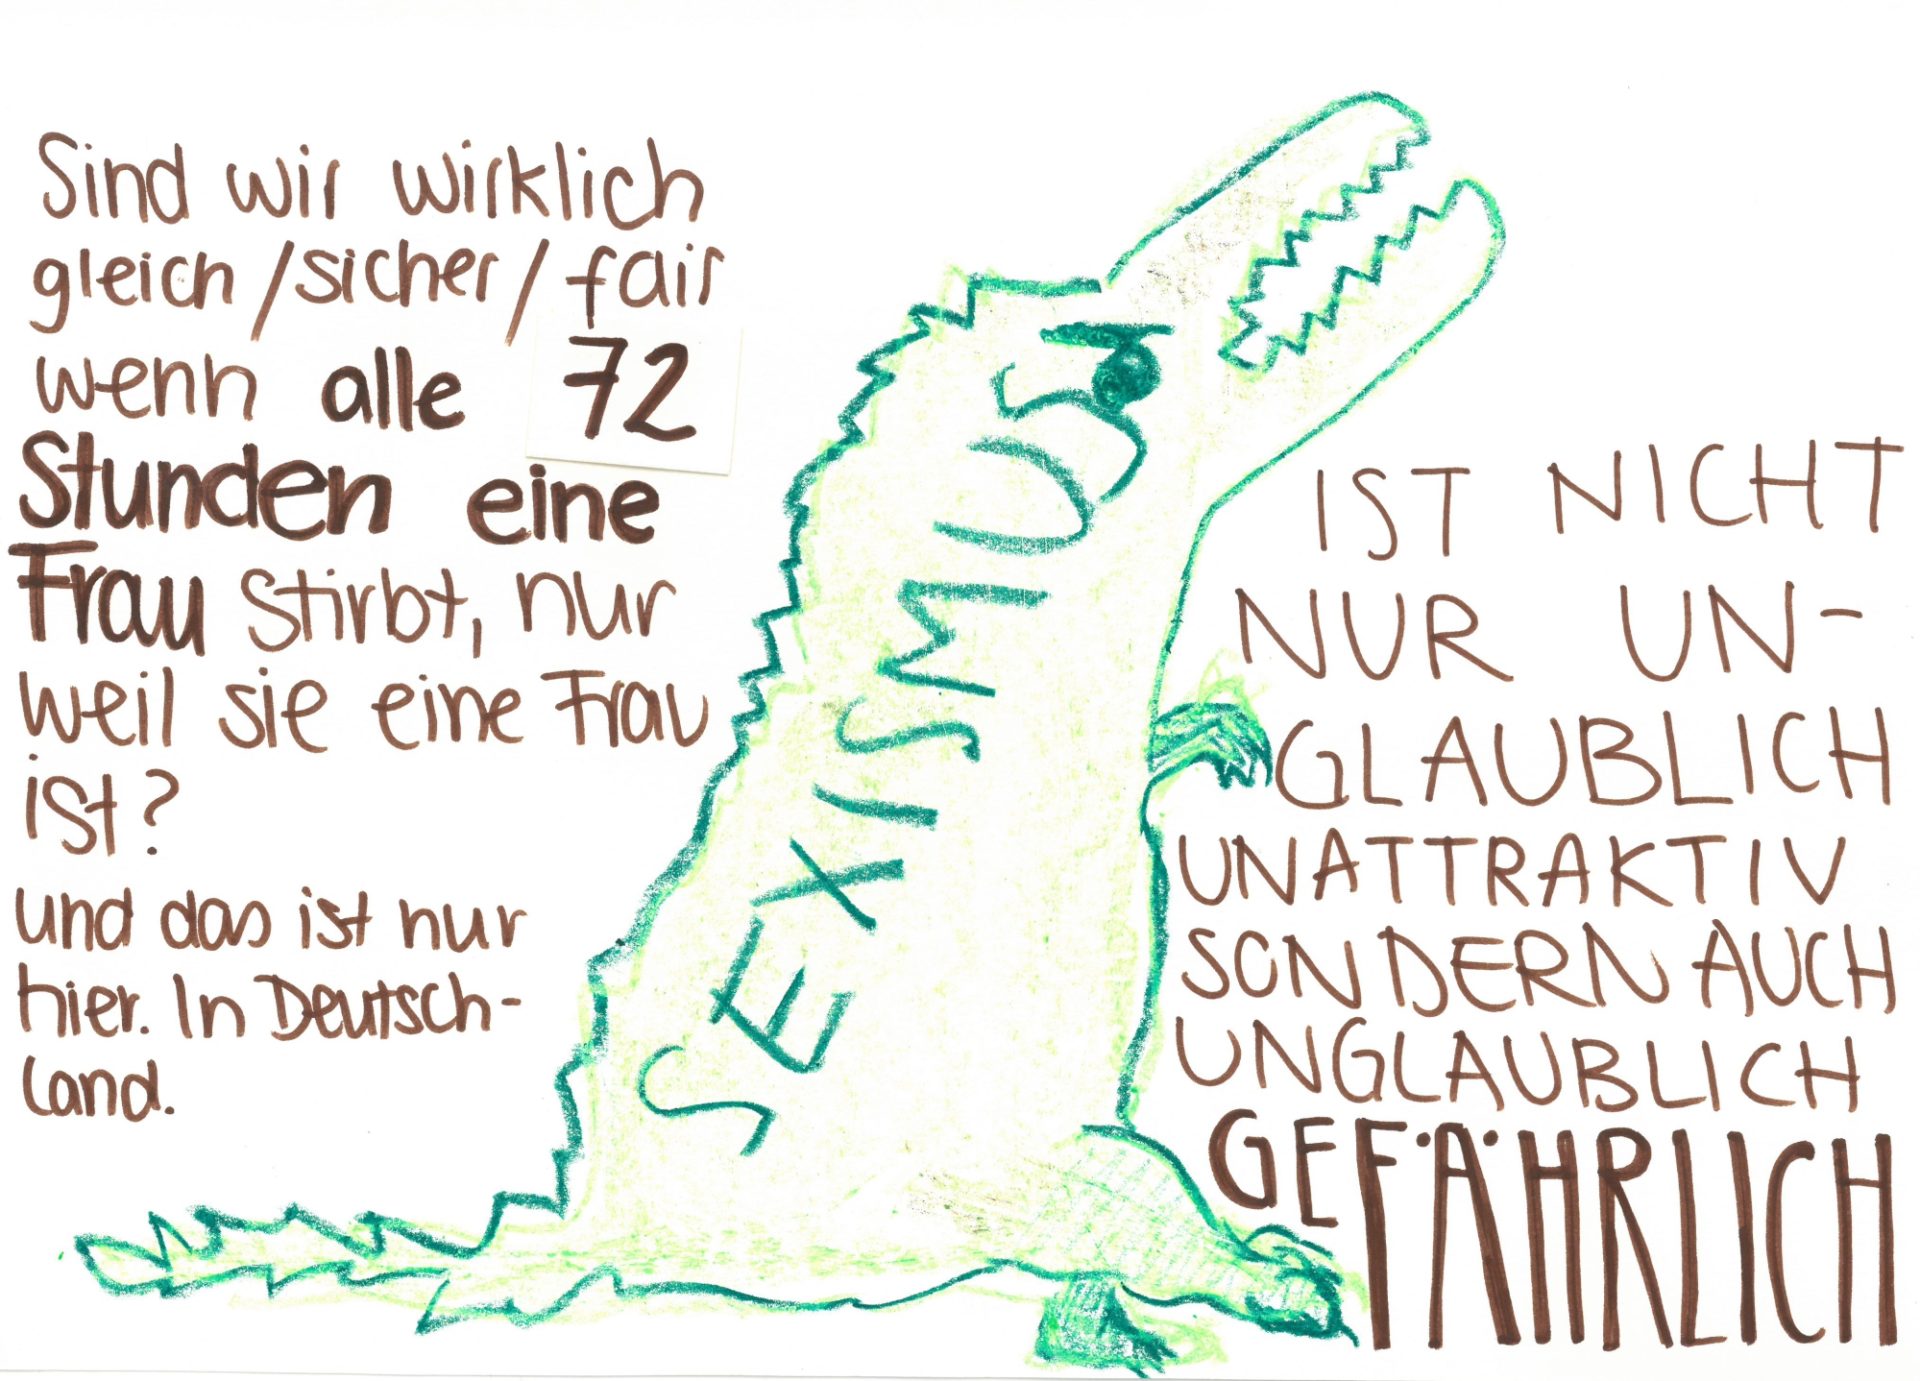 Sind wir wirklich
gleich/sicher/fair
wenn alle 72
Stunden eine
Frau stirbt, nur
weil sie eine Frau
ist?
und das ist nur
hier. In Deutsch-
land.
SEXISMUS
IST NICHT
NUR UN-
GLAUBLICH
UNATTRAKTIV
SONDERN AUCH
UNGLAUBLICH
GEFÄHRLICH